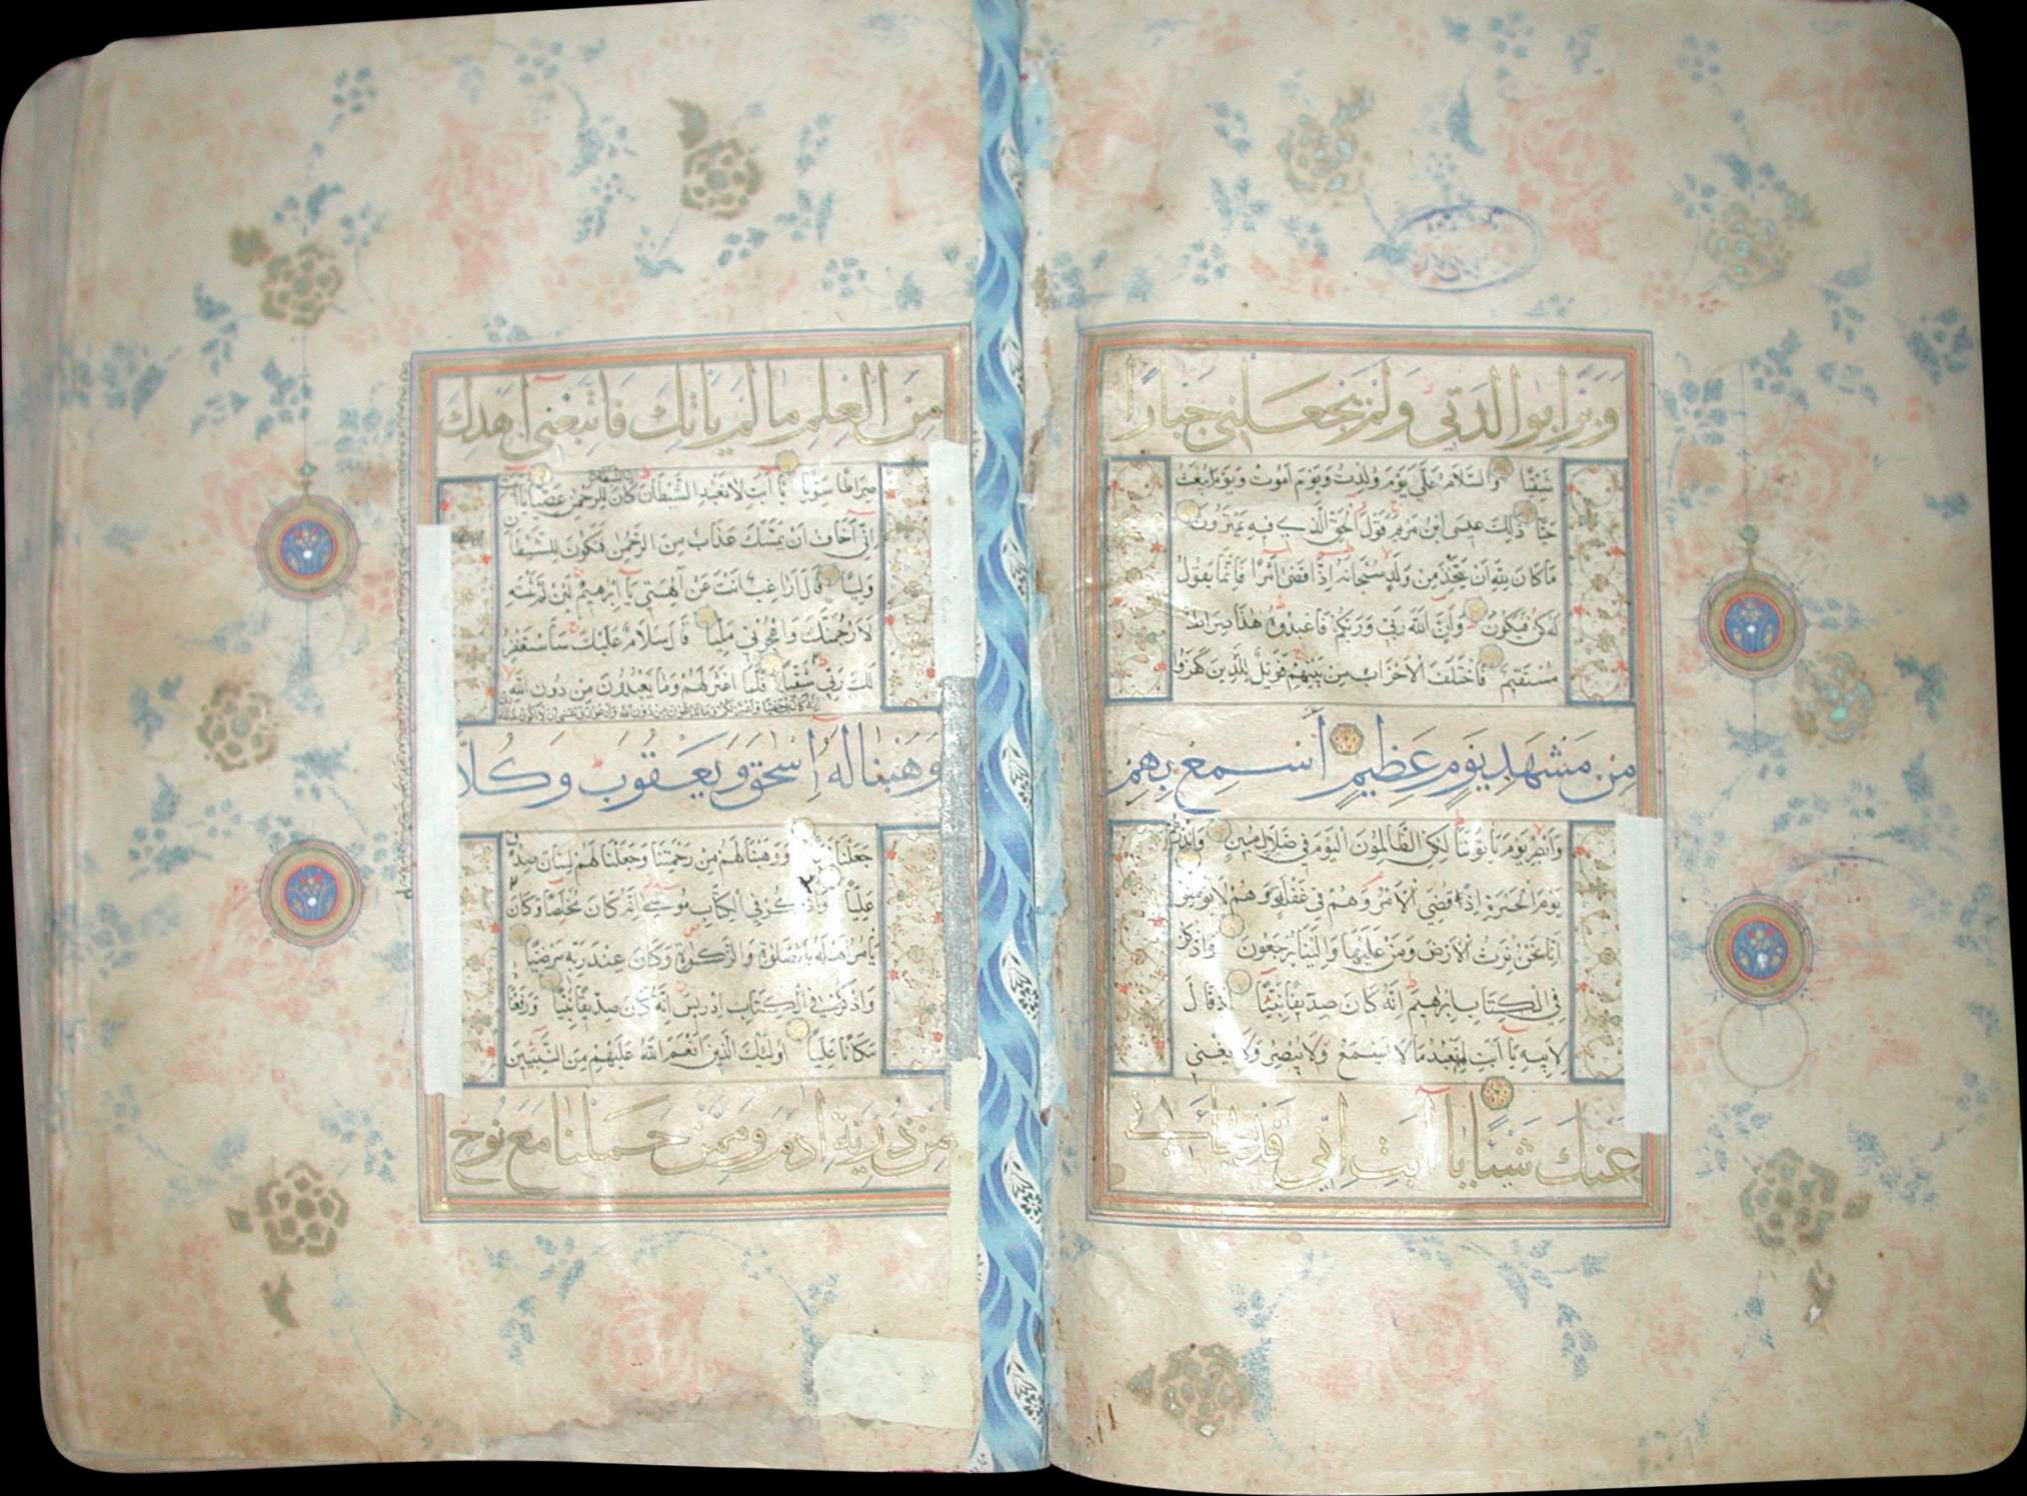 وَبَرًّا بِوَالِدَتِي وَلَمْ يَجْعَلْنِي جَبَّارًا
شَقِيًّا وَالسَّلَامُ عَلَيَّ يَوْمَ وُلِدْتُ وَيَوْمَ أَمُوتُ وَيَوْمَ أُبْعَثُ
حَيًّا ذَٰلِكَ عِيسَى ابْنُ مَرْيَمَ قَوْلَ الْحَقِّ الَّذِي فِيهِ يَمْتَرُونَ
مَا كَانَ لِلَّهِ أَنْ يَتَّخِذَ مِنْ وَلَدٍ سُبْحَانَهُ إِذَا قَضَى أَمْرًا فَإِنَّمَا يَقُولُ
لَهُ كُنْ فَيَكُونُ وَإِنَّ اللَّهَ رَبِّي وَرَبُّكُمْ فَاعْبُدُوهُ هَٰذَا صِرَاطٌ
مُسْتَقِيمٌ فَاخْتَلَفَ الْأَحْزَابُ مِنْ بَيْنِهِمْ فَوَيْلٌ لِلَّذِينَ كَفَرُوا
مِنْ مَشْهَدِ يَوْمٍ عَظِيمٍ أَسْمِعْ بِهِمْ
وَأَبْصِرْ يَوْمَ يَأْتُونَنَا لَكِنِ الظَّالِمُونَ الْيَوْمَ فِي ضَلَالٍ مُبِينٍ وَأَنْذِرْهُمْ
يَوْمَ الْحَسْرَةِ إِذْ قُضِيَ الْأَمْرُ وَهُمْ فِي غَفْلَةٍ وَهُمْ لَا يُؤْمِنُونَ
إِنَّا نَحْنُ نَرِثُ الْأَرْضَ وَمَنْ عَلَيْهَا وَإِلَيْنَا يُرْجَعُونَ وَاذْكُرْ
فِي الْكِتَابِ إِبْرَاهِيمَ إِنَّهُ كَانَ صِدِّيقًا نَبِيًّا إِذْ قَالَ
لِأَبِيهِ يَا أَبَتِ لِمَ تَعْبُدُ مَا لَا يَسْمَعُ وَلَا يُبْصِرُ وَلَا يُغْنِي
عَنْكَ شَيْئًا يَا أَبَتِ إِنِّي قَدْ جَاءَنِي
مِنَ الْعِلْمِ مَا لَمْ يَأْتِكَ فَاتَّبِعْنِي أَهْدِكَ
صِرَاطًا سَوِيًّا يَا أَبَتِ لَا تَعْبُدِ الشَّيْطَانَ إِنَّ الشَّيْطَانَ كَانَ لِلرَّحْمَٰنِ عَصِيًّا يَا أَبَتِ
إِنِّي أَخَافُ أَنْ يَمَسَّكَ عَذَابٌ مِنَ الرَّحْمَٰنِ فَتَكُونَ لِلشَّيْطَانِ
وَلِيًّا قَالَ أَرَاغِبٌ أَنْتَ عَنْ آلِهَتِي يَا إِبْرَاهِيمُ لَئِنْ لَمْ تَنْتَهِ
لَأَرْجُمَنَّكَ وَاهْجُرْنِي مَلِيًّا قَالَ سَلَامٌ عَلَيْكَ سَأَسْتَغْفِرُ
لَكَ رَبِّي شَقِيًّا فَلَمَّا اعْتَزَلَهُمْ وَمَا يَعْبُدُونَ مِنْ دُونِ اللَّهِ
إِنَّهُ كَانَ بِي حَفِيًّا وَأَعْتَزِلُكُمْ وَمَا تَدْعُونَ مِنْ دُونِ اللَّهِ وَأَدْعُو رَبِّي عَسَى أَنْ لَا أَكُونَ بِدُعَاءِ
وَهَبْنَا لَهُ إِسْحَقَ وَيَعْقُوبَ وَكُلًّا
جَعَلْنَا نَبِيًّا وَوَهَبْنَا لَهُمْ مِنْ رَحْمَتِنَا وَجَعَلْنَا لَهُمْ لِسَانَ صِدْقٍ
عَلِيًّا وَاذْكُرْ فِي الْكِتَابِ مُوسَى إِنَّهُ كَانَ مُخْلَصًا وَكَانَ
يَأْمُرُ أَهْلَهُ بِالصَّلَوٰةِ وَالزَّكَوٰةِ وَكَانَ عِنْدَ رَبِّهِ مَرْضِيًّا
وَاذْكُرْ فِي الْكِتَابِ إِدْرِيسَ إِنَّهُ كَانَ صِدِّيقًا نَبِيًّا وَرَفَعْنَاهُ
مَكَانًا عَلِيًّا أُولَٰئِكَ الَّذِينَ أَنْعَمَ اللَّهُ عَلَيْهِمْ مِنَ النَّبِيِّينَ
مِنْ ذُرِّيَّةِ آدَمَ وَمِمَّنْ حَمَلْنَا مَعَ نُوحٍ